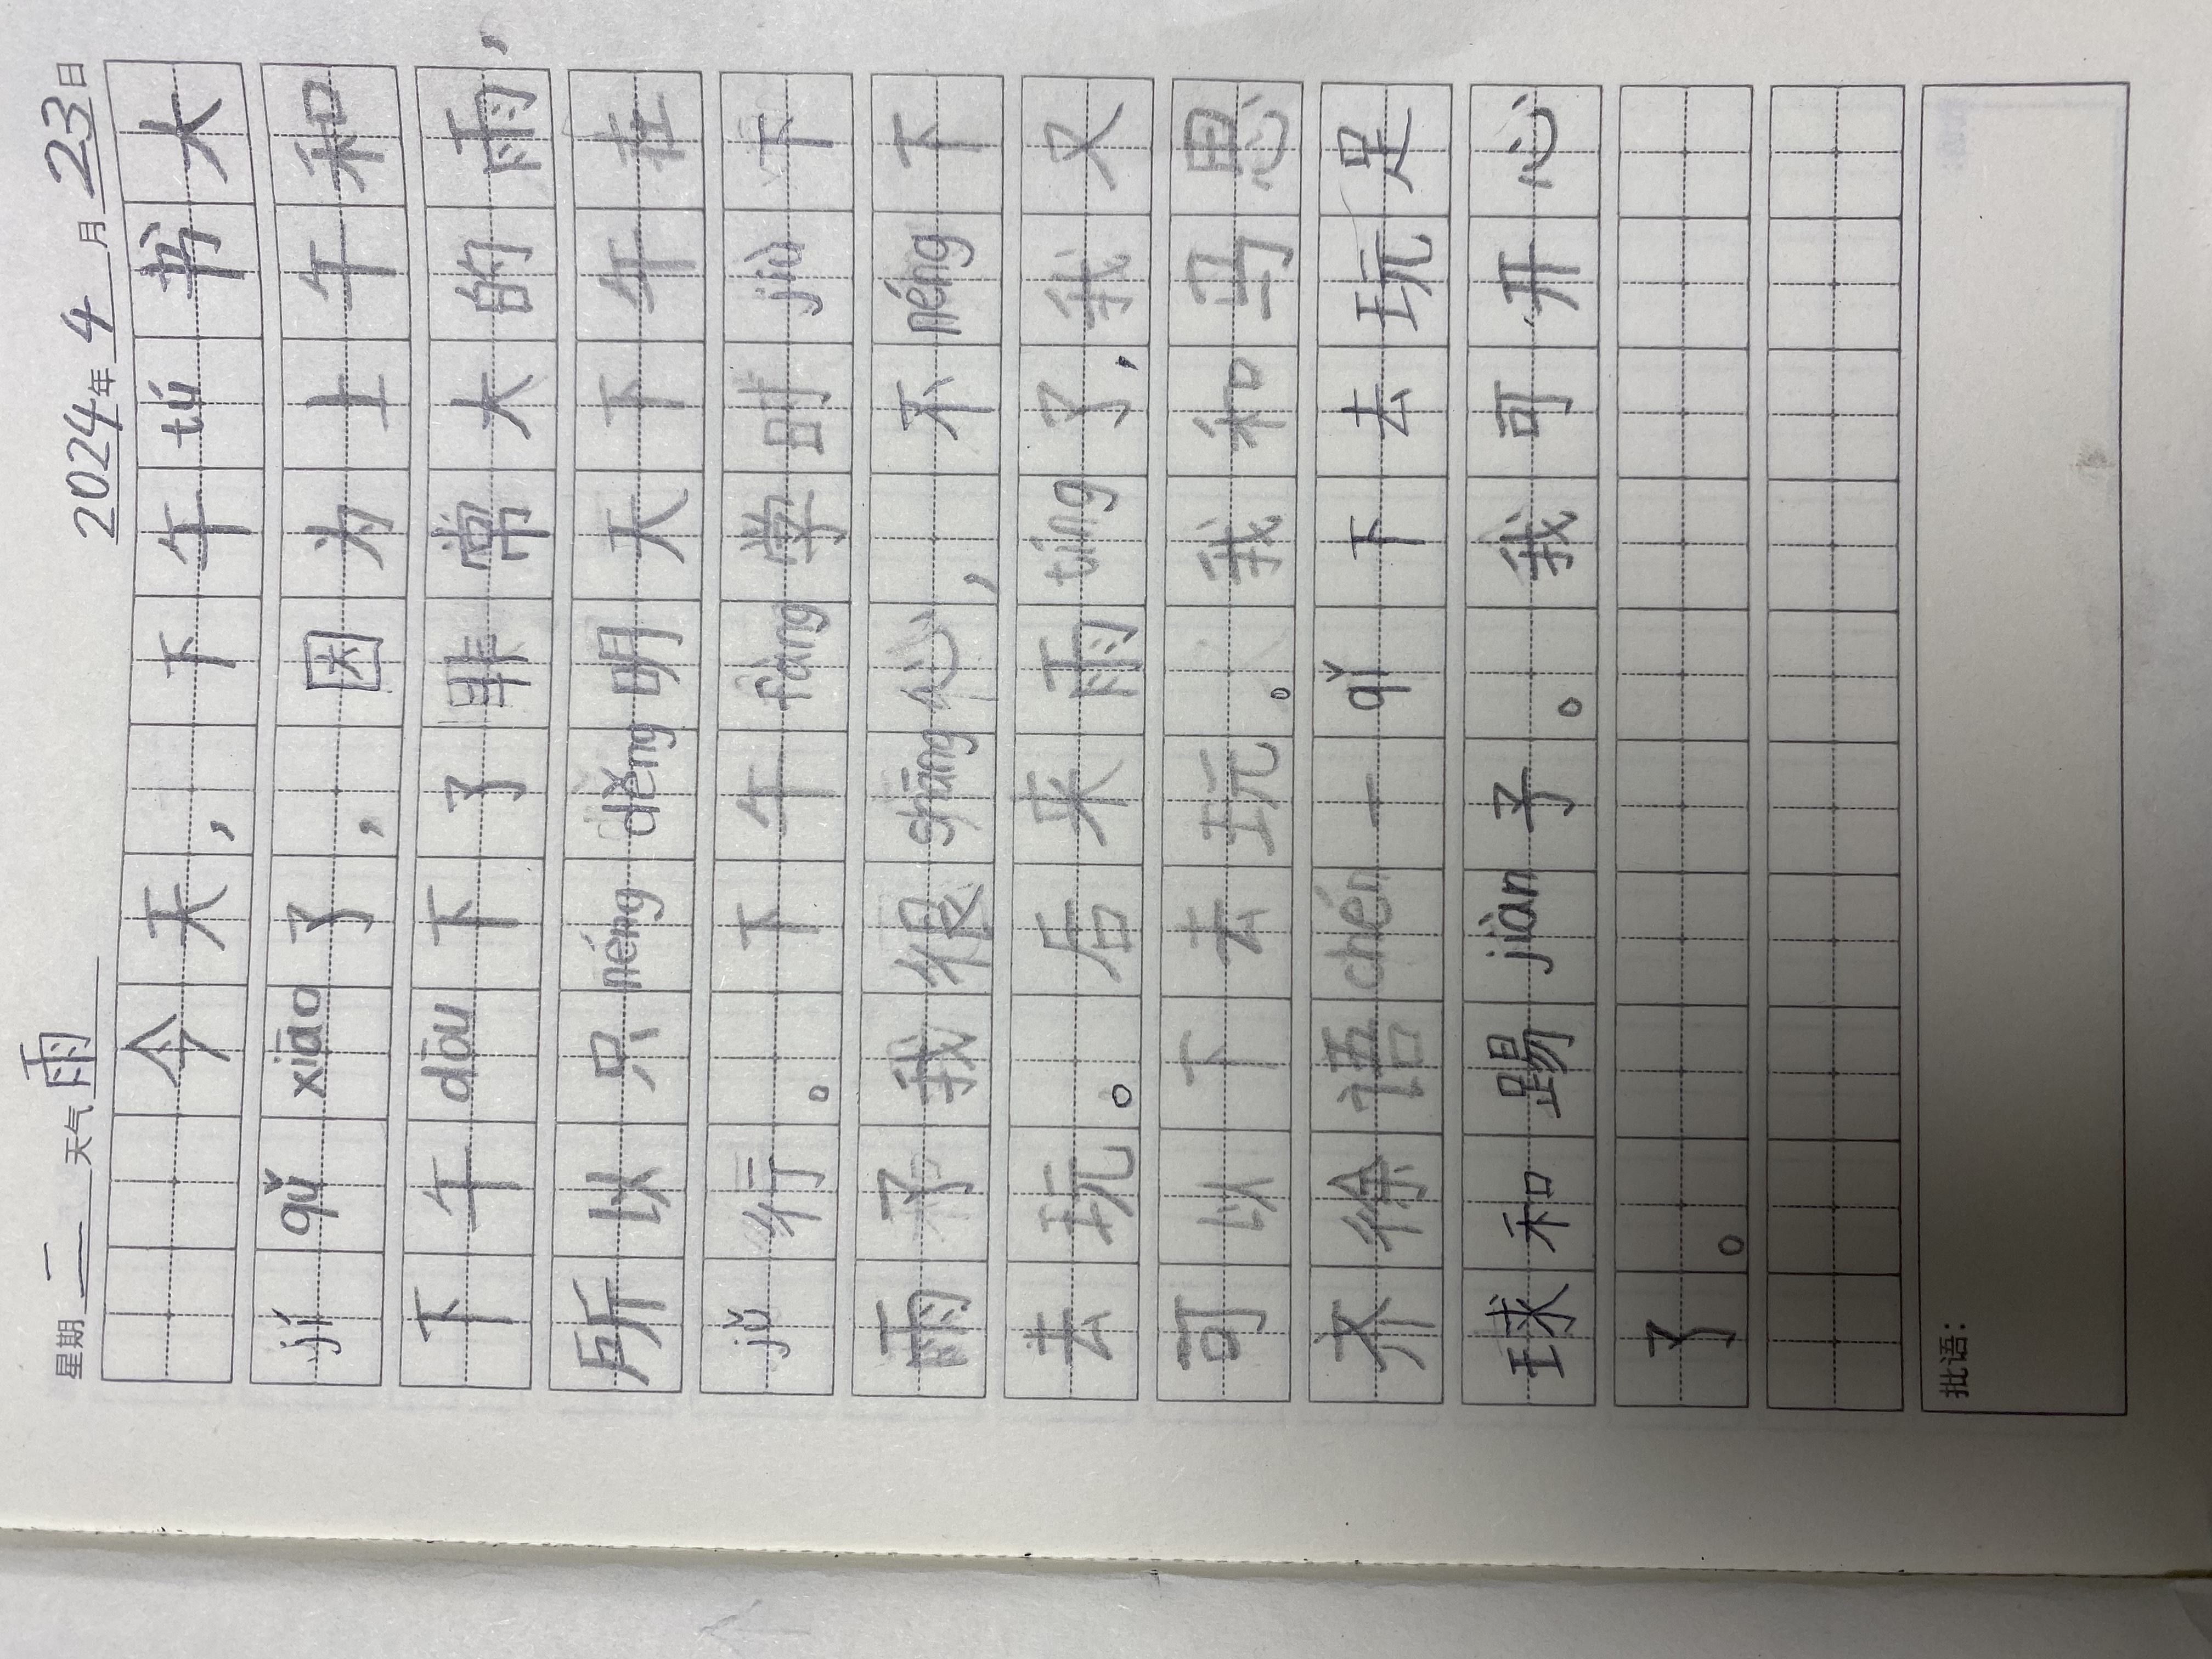 星期二 天气雨 2024年4月23日
今天，下午tú书大
jí qǔ xiāo了，因为上午和
下午dōu下了非常大的雨，
所以只néng děng明天下午在
jǔ行。下午fàng学时jiù下
雨了我很shāng心，不néng下
去玩。后来雨tíng了，我又
可以下去玩。我和马思
齐徐语chén一qǐ下去玩足
球和踢jiàn子。我可开心
了。
批语：